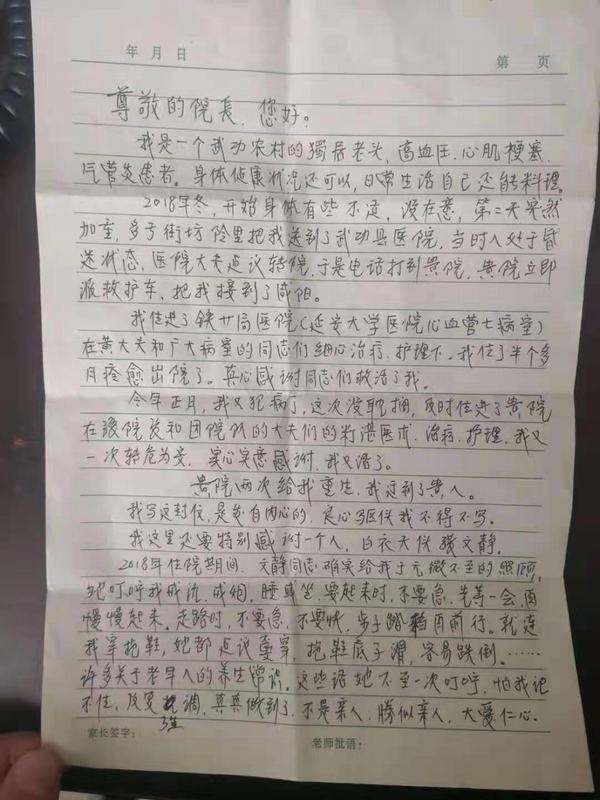 年 月 日 第 页
尊敬的院长,您好。
我是一个武功农村的獨居老头,高血压.心肌梗塞.
气管炎患者。身体健康状况还可以,日常生活自己还能料理。
2018年冬,开始身体有些不适,没在意,第二天突然
加重,多亏街坊邻里把我送到了武功县医院,当时人处于昏
迷状态.医院大夫建议转院,于是电话打到贵院.贵院立即
派救护车,把我接到了咸阳。
我住进了铁廿局医院(延安大学医院心血管七病室)
在黄大夫和广大病室的同志们细心治疗.护理下.我住了半个多
月痊愈出院了。真心感谢同志们救活了我。
今年正月,我又犯病了,这次没耽搁,及时住进了贵院
在 院长和团院队的大夫们的精湛医术.治疗.护理.我又
一次转危为安.实心实意感谢.我又活了。
贵院两次给我重生.我遇到了贵人。
我写这封信,是发自内心的.良心驱使我不得不写。
我这里还要特别感谢一个人,白衣天使 文静。
2018年住院期间.文静同志确实给我于无微不至的照顾,
她叮咛我戒酒.戒烟,睡或坐.要起来时,不要急.先等一会,再
慢慢起来.走路时,不要急.不要快.步子踏稍再前行。就连
我穿拖鞋,她都建议 穿,拖鞋底子滑,容易跌倒。……
许多关于老年人的养生常识。这些话她不至一次叮咛.怕我记
不住,反复强调.真真做到了.不是亲人.勝似亲人.大爱仁心.
家长签字: 老师批语: